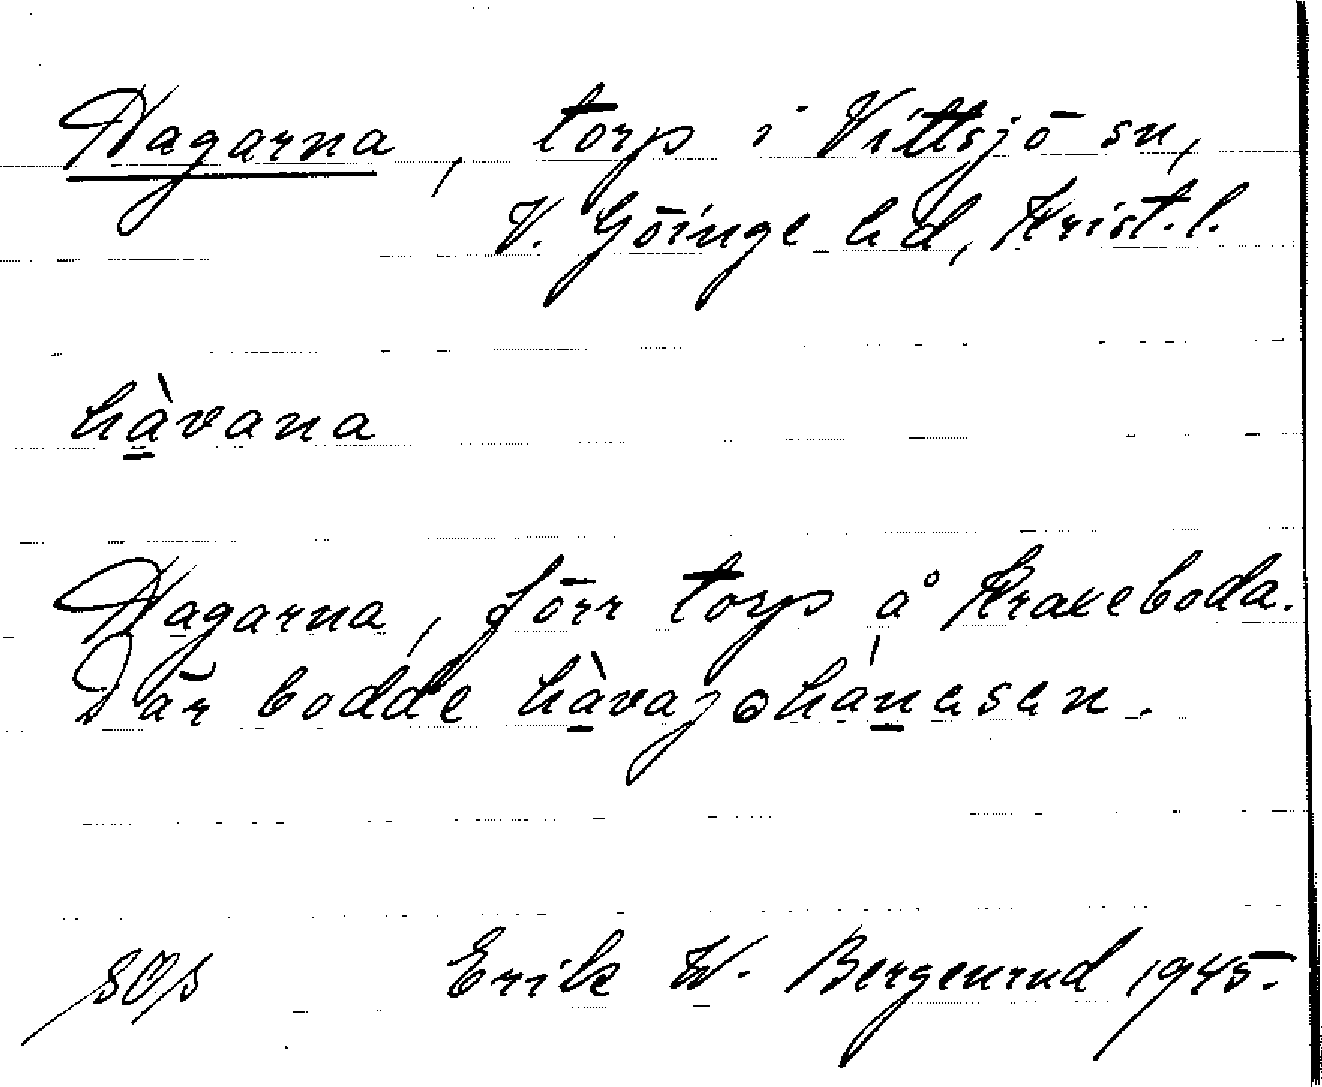 Hagarna, torp i Vittsjö sn,
V. Göinge hd, Krist. l.
hàvana
Hagarna, förr torp å Krakeboda.
Där bodde hàvajohánəsən.
Erik W. Bergenrud 1945.